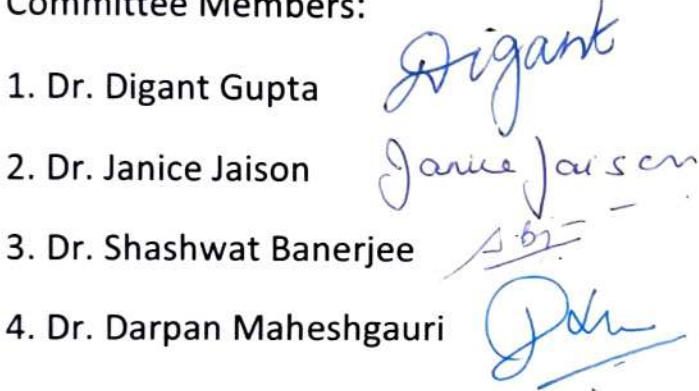 Committee Members:
1. Dr. Digant Gupta Digant
2. Dr. Janice Jaison Janice Jaison
3. Dr. Shashwat Banerjee
4. Dr. Darpan Maheshgauri